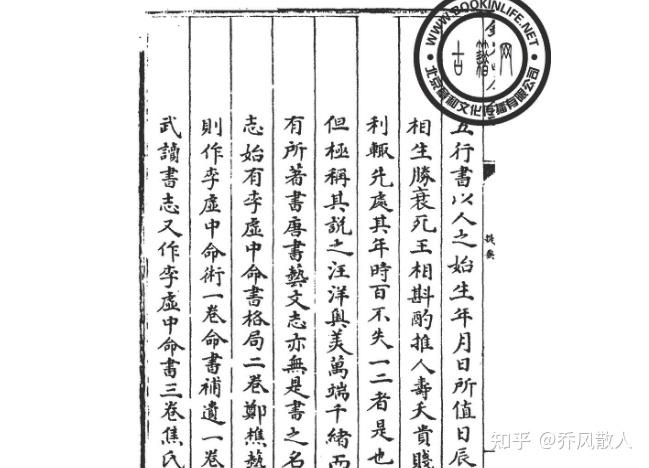 WWW.BOOKINLIFE.NET
古籍网
北京 和文化传播有限公司
提要
五行書以人之始生年月日所值日辰
相生勝衰死王相斟酌推人壽夭貴賤
利輒先處其年時百不失一二者是也
但極稱其說之汪洋奥美萬端千緒而
有所著書唐書藝文志亦無是書之名
志始有李虛中命書格局二卷鄭樵藝
則作李虛中命術一卷命書補遺一卷
武讀書志又作李虛中命書三卷焦氏
知乎 @乔风散人